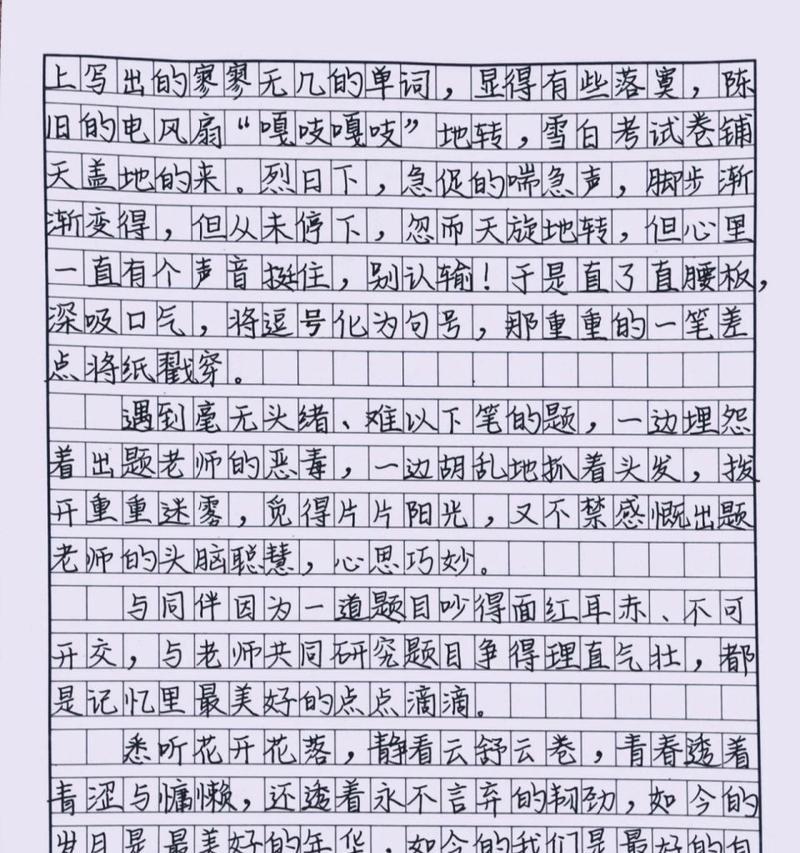 上写出的寥寥无几的单词，显得有些落寞，陈
旧的电风扇“嘎吱嘎吱”地转，雪白考试卷铺
天盖地的来。烈日下，急促的喘急声，脚步渐
渐变得，但从未停下，忽而天旋地转，但心里
一直有个声音挺住，别认输！于是直了直腰板，
深吸口气，将逗号化为句号，那重重的一笔差
点将纸戳穿。
遇到毫无头绪、难以下笔的题，一边埋怨
着出题老师的恶毒，一边胡乱地抓着头发，拨
开重重迷雾，觅得片片阳光，又不禁感慨出题
老师的头脑聪慧，心思巧妙。
与同伴因为一道题目吵得面红耳赤、不可
开交，与老师共同研究题目争得理直气壮，都
是记忆里最美好的点点滴滴。
悉听花开花落，静看云舒云卷，青春透着
青涩与慵懒，还透着永不言弃的韧劲，如今的
岁月是最美好的年华，如今的我们是最好的自